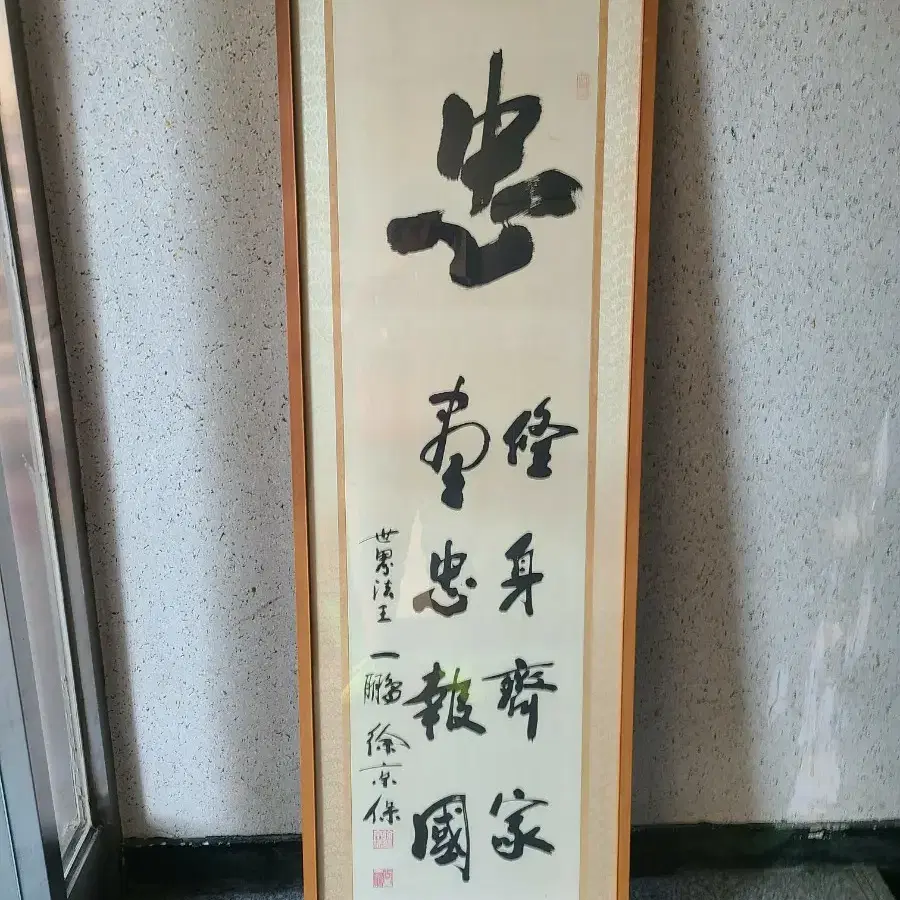 忠
修身齊家
盡忠報國
世界法王 一鵬 徐京保